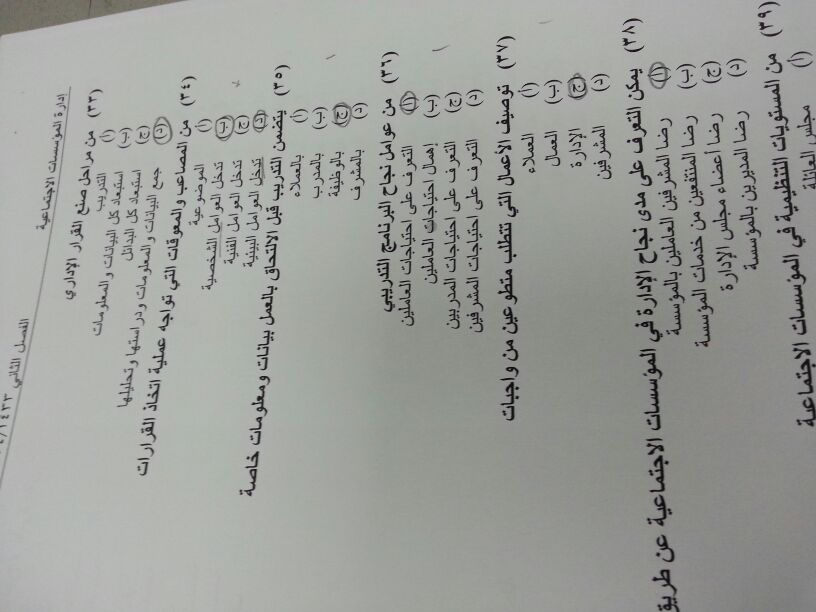 الفصل الثاني
إدارة المؤسسات الاجتماعية
(٣٣) من مراحل صنع القرار الإداري
(أ) التدريب
(ب) استبعاد كل البيانات والمعلومات
(ج) استبعاد كل البدائل
(د) جمع البيانات والمعلومات ودراستها وتحليلها
(٣٤) من المصاعب والمعوقات التي تواجه عملية اتخاذ القرارات
(أ) الموضوعية
(ب) تدخل العوامل الشخصية
(ج) تدخل العوامل الفنية
(د) تدخل العوامل البيئية
(٣٥) يتضمن التدريب قبل الالتحاق بالعمل بيانات ومعلومات خاصة
(أ) بالعملاء
(ب) بالمدرب
(ج) بالوظيفة
(د) بالمشرف
(٣٦) من عوامل نجاح البرنامج التدريبي
(أ) التعرف على احتياجات العاملين
(ب) إهمال احتياجات العاملين
(ج) التعرف على احتياجات المدربين
(د) التعرف على احتياجات المشرفين
(٣٧) توصيف الأعمال التي تتطلب متطوعين من واجبات
(أ) العملاء
(ب) العمال
(ج) الإدارة
(د) المشرفين
(٣٨) يمكن التعرف على مدى نجاح الإدارة في المؤسسات الاجتماعية عن طريق
(أ) رضا المشرفين العاملين بالمؤسسة
(ب) رضا المنتفعين من خدمات المؤسسة
(ج) رضا أعضاء مجلس الإدارة
(د) رضا المديرين بالمؤسسة
(٣٩) من المستويات التنظيمية في المؤسسات الاجتماعية
(أ) مجلس العائلة